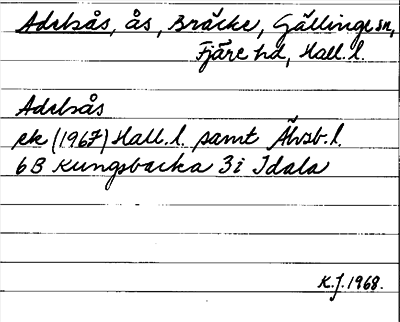 Adelsås, ås, Bräcke, Gällinge sn,
Fjäre hd, Hall.l.
Adelsås
ek (1967) Hall.l. samt Älvsb.l.
6B Kungsbacka 3i Idala
K.J. 1968.